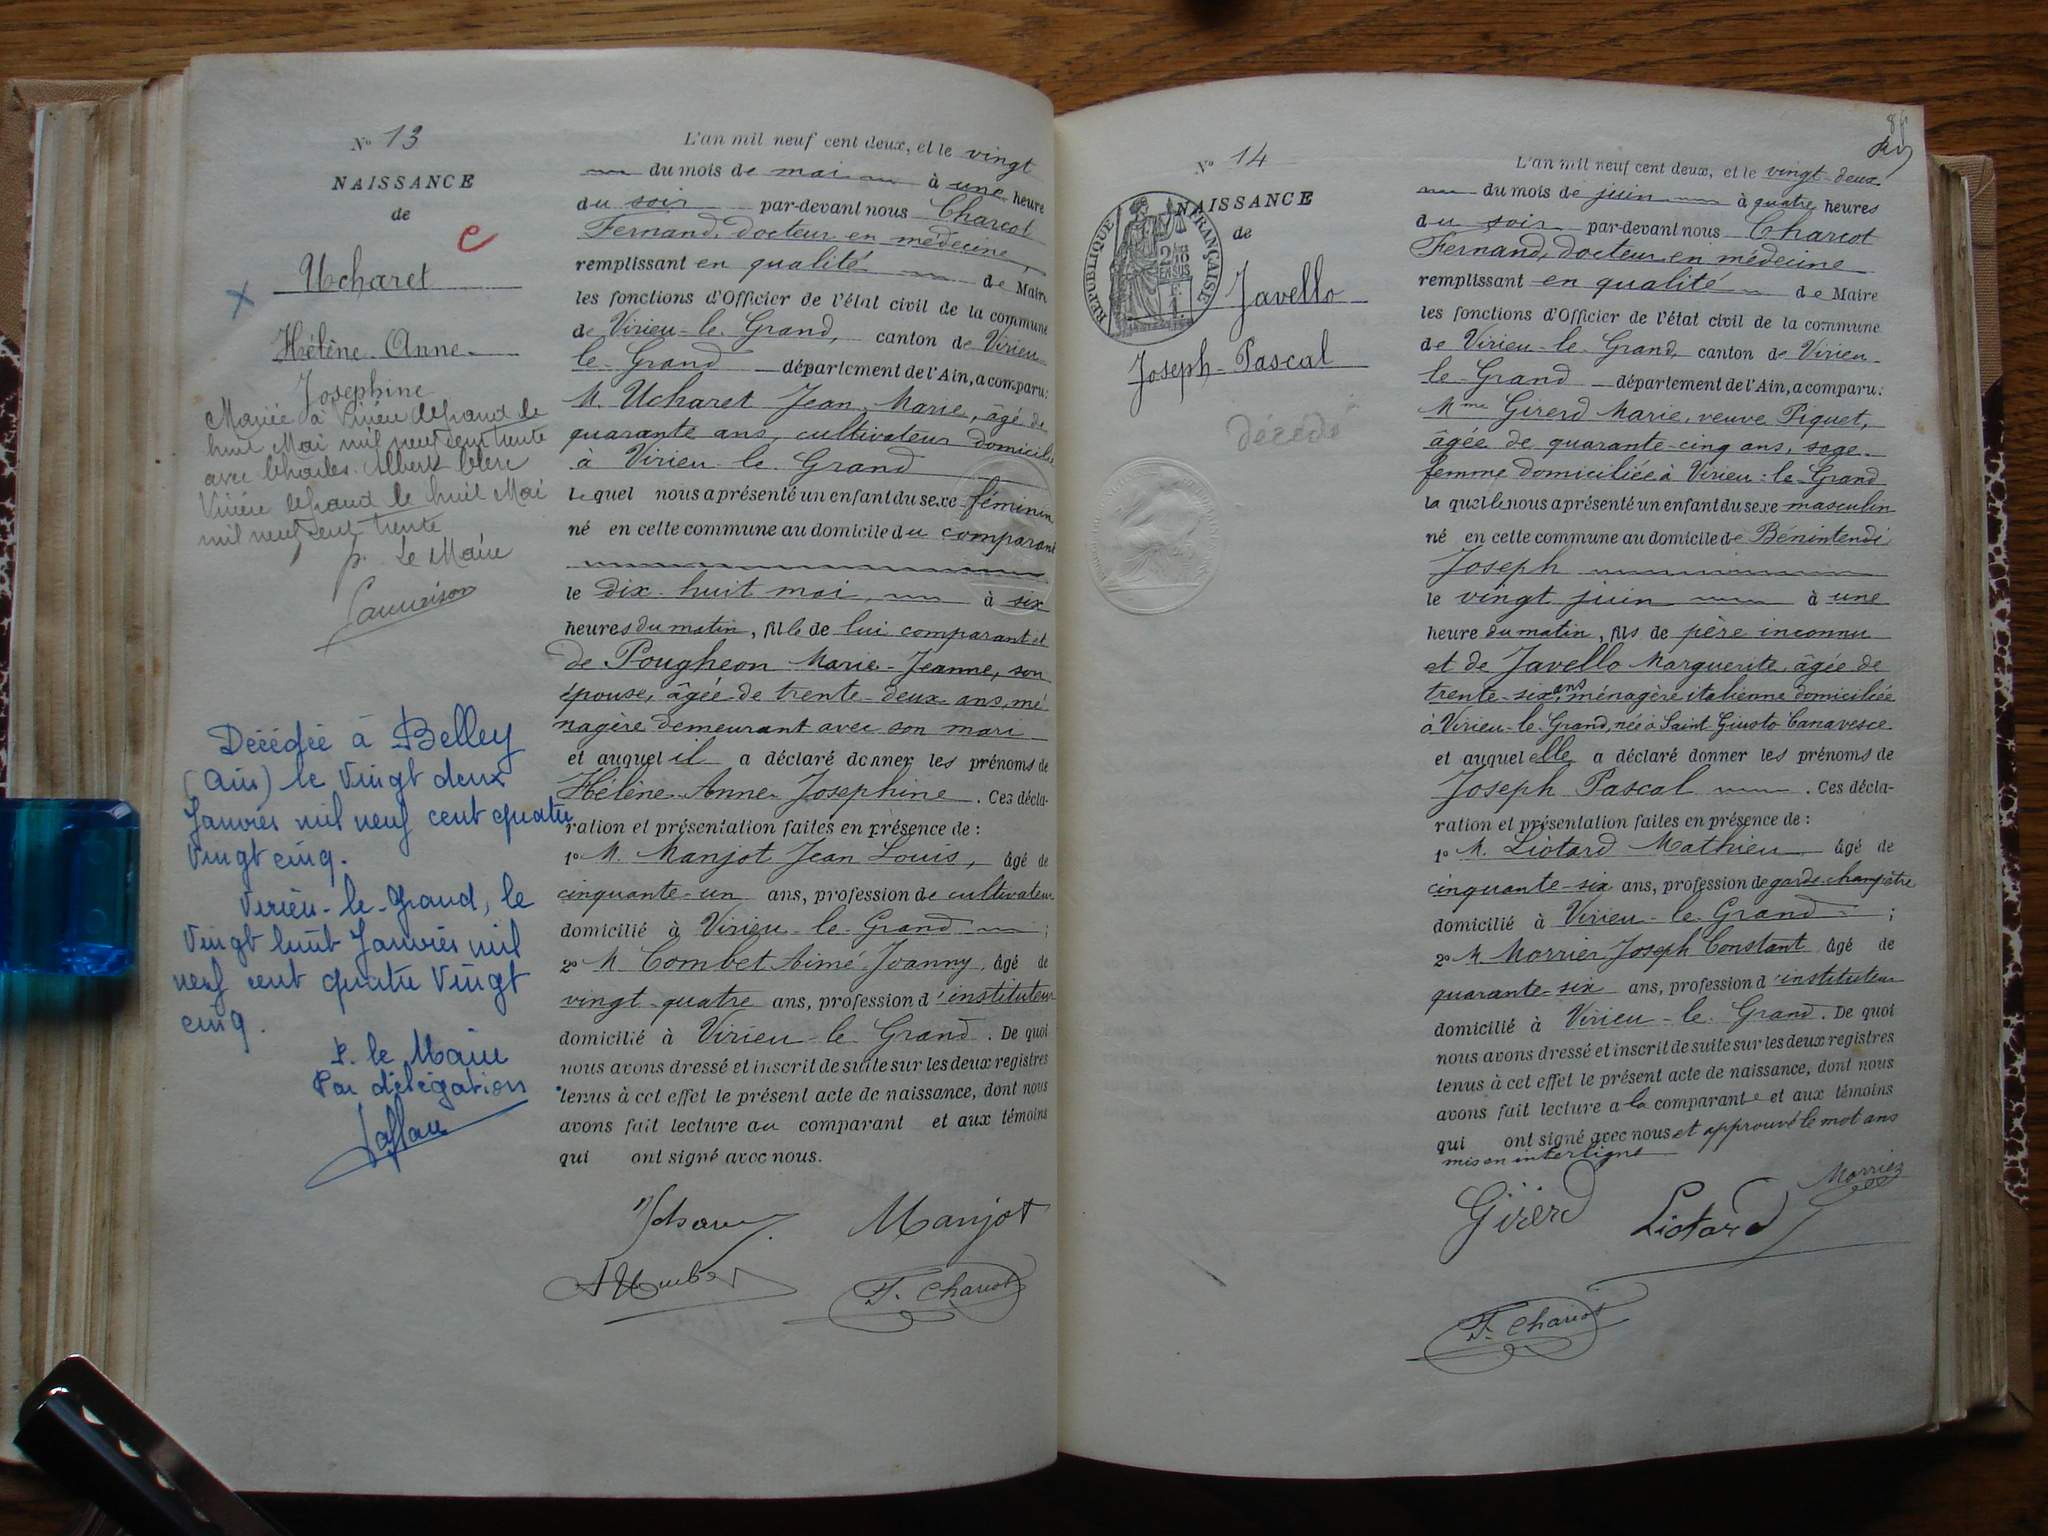 N° 13
NAISSANCE
de
e
Ucharet
x
Hélène-Anne-
Josephine
Mariée à Virieu legrand le
huit Mai mil neuf cent trente
avec Charles Albert Clerc
Virieu legrand le huit Mai
mil neuf cent trente
p. Le Maire
Décédée à Belley
(Ain) le Vingt deux
Janvier mil neuf cent quatre
Vingt cinq.
Virieu-le-Grand, le
Vingt huit Janvier mil
neuf cent quatre Vingt
cinq.
P. le Maire
Par délégation
L'an mil neuf cent deux, et le vingt
du mois de mai à une heure
du soir par-devant nous Charcot
Fernand, docteur en médecine,
remplissant en qualité de Maire
les fonctions d'Officier de l'état civil de la commune
de Virieu-le-Grand, canton de Virieu-
le-Grand département de l'Ain, a comparu:
M. Ucharet Jean-Marie, âgé de
quarante ans, cultivateur domicilié
à Virieu-le-Grand
lequel nous a présenté un enfant du sexe féminin
né en cette commune au domicile du comparant
le dix-huit mai, à six
heures du matin, fille de lui comparant et
de Pougheon Marie-Jeanne, son
épouse, âgée de trente-deux ans, mé-
nagère demeurant avec son mari
et auquel il a déclaré donner les prénoms de
Hélène-Anne-Josephine. Ces décla-
ration et présentation faites en présence de :
1° M. Manjot Jean Louis, âgé de
cinquante-un ans, profession de cultivateur
domicilié à Virieu-le-Grand ;
2° M. Combet Aimé Joanny, âgé de
vingt-quatre ans, profession d'instituteur
domicilié à Virieu-le-Grand. De quoi
nous avons dressé et inscrit de suite sur les deux registres
tenus à cet effet le présent acte de naissance, dont nous
avons fait lecture au comparant et aux témoins
qui ont signé avec nous.
Manjot
F. Charcot
N° 14
NAISSANCE
de
RÉPUBLIQUE FRANÇAISE
Javello
Joseph-Pascal
décédé
L'an mil neuf cent deux, et le vingt-deux
du mois de juin à quatre heures
du soir par-devant nous Charcot
Fernand, docteur en médecine
remplissant en qualité de Maire
les fonctions d'Officier de l'état civil de la commune
de Virieu-le-Grand, canton de Virieu-
le-Grand département de l'Ain, a comparu:
Mme Girerd Marie, veuve Piquet,
âgée de quarante-cinq ans, sage-
femme domiciliée à Virieu-le-Grand
laquelle nous a présenté un enfant du sexe masculin
né en cette commune au domicile de Bénintendi
Joseph
le vingt juin à une
heure du matin, fils de père inconnu
et de Javello Marguerite, âgée de
trente-six ans ménagère italienne domiciliée
à Virieu-le-Grand, née à Saint Giusto Canavesce
et auquel elle a déclaré donner les prénoms de
Joseph Pascal . Ces décla-
ration et présentation faites en présence de :
1° M. Liotard Mathieu âgé de
cinquante-six ans, profession de garde-champêtre
domicilié à Virieu-le-Grand ;
2° M. Morrier Joseph Constant âgé de
quarante-six ans, profession d'instituteur
domicilié à Virieu-le-Grand. De quoi
nous avons dressé et inscrit de suite sur les deux registres
tenus à cet effet le présent acte de naissance, dont nous
avons fait lecture a la comparante et aux témoins
qui ont signé avec nous et approuvé le mot ans
mis en interligne
Morrier
Girerd Liotard
F. Charcot